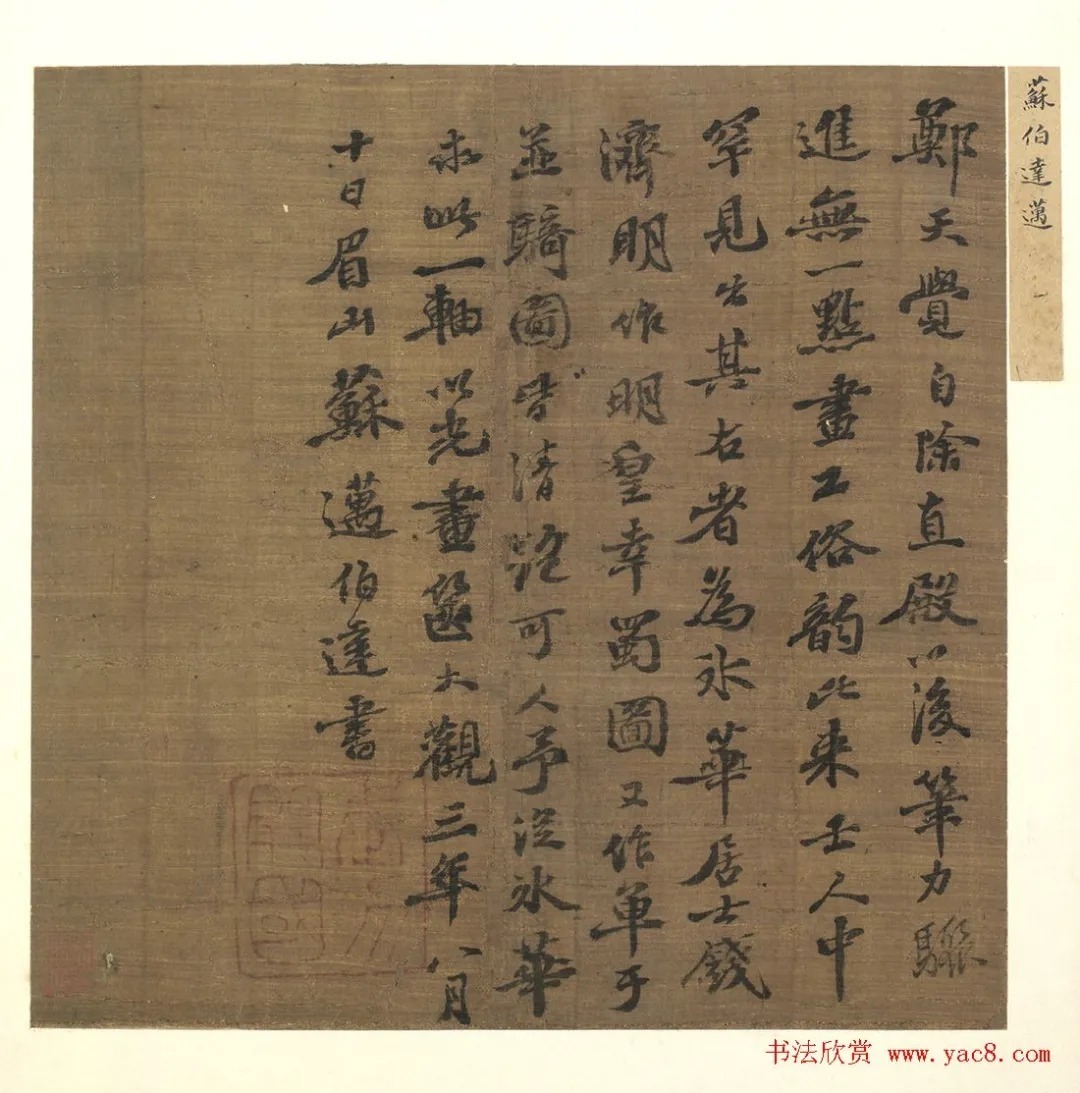 蘇伯達邁
鄭天覺自除直殿以後筆力驟
進無一點畫工俗韵比來士人中
罕見出其右者為冰華居士錢
濟明作明皇幸蜀圖又作單于
並騎圖皆清絕可人予從冰華
求此一軸以光畫篋大觀三年八月
十日眉山蘇邁伯達書
书法欣赏 www.yac8.com